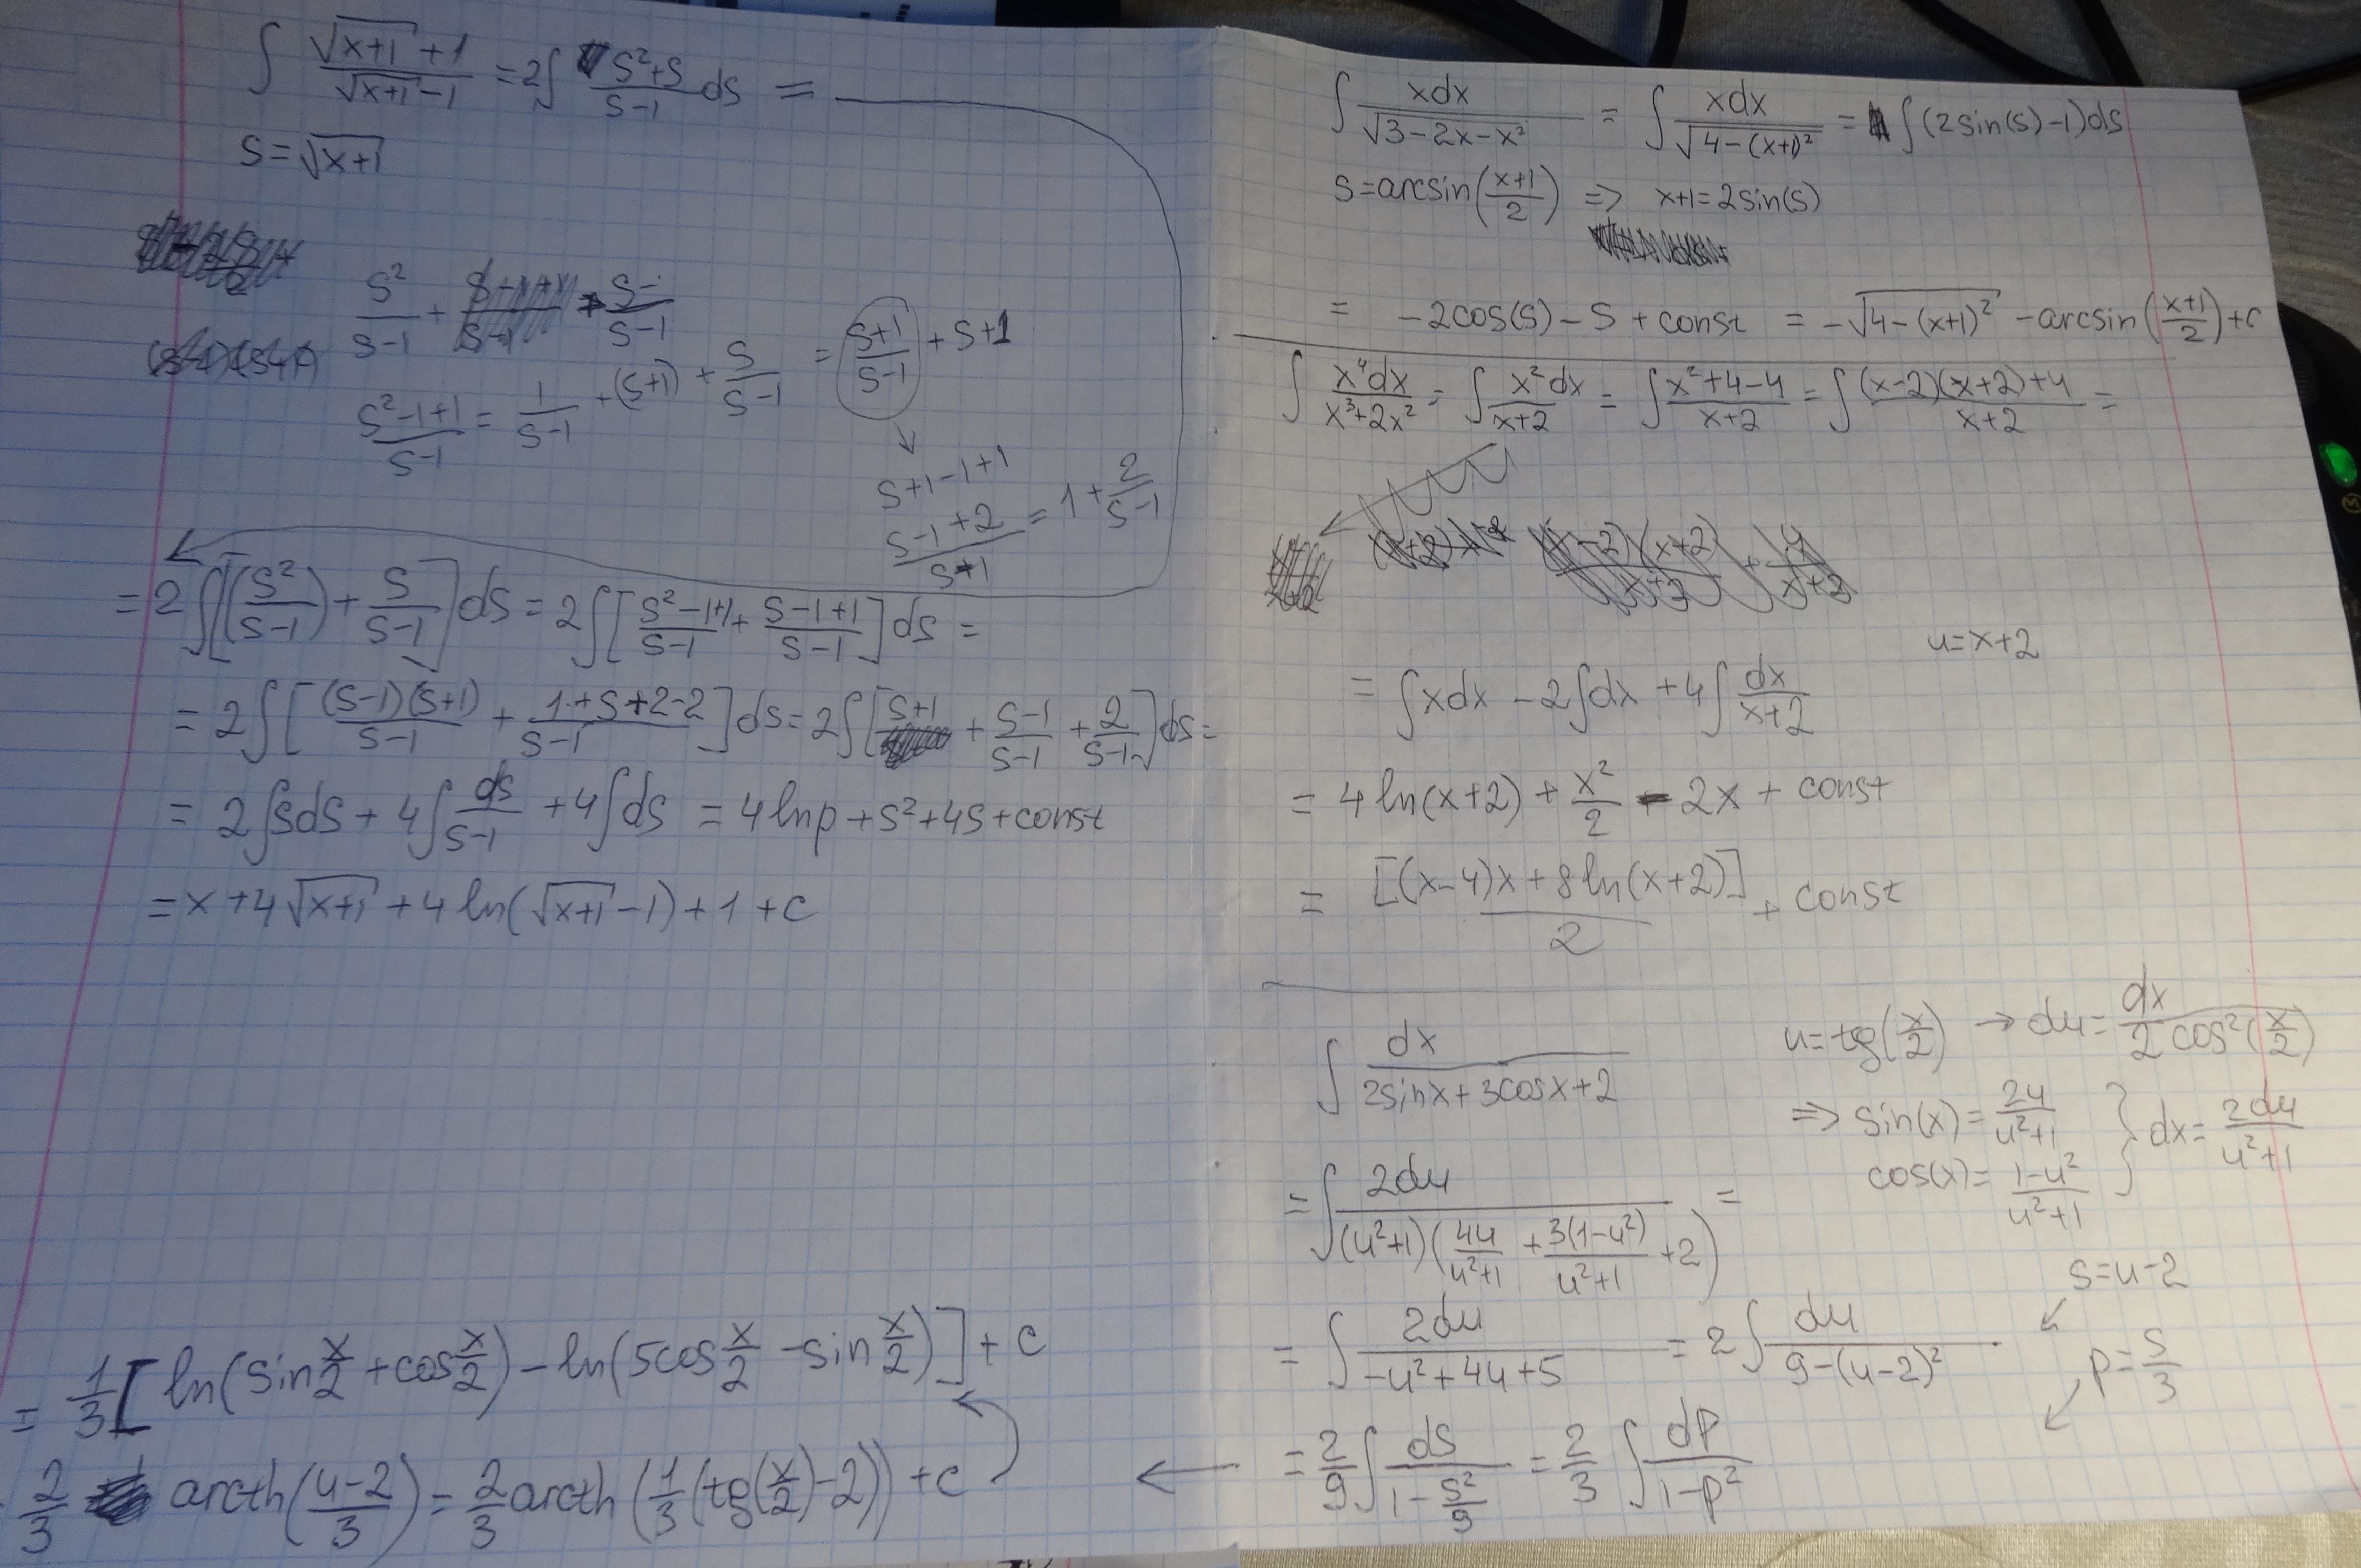 ∫ (√(x+1) + 1)/(√(x+1) - 1) = 2∫ (s²+s)/(s-1) ds =
s = √(x+1)
s²/(s-1) + s-1+1/(s-1) + s-/(s-1)
(s²-1+1)/(s-1) = 1/(s-1) + (s+1) + s/(s-1) = (s+1)/(s-1) + s+1
s+1-1+1
(s-1+2)/(s-1) = 1 + 2/(s-1)
= 2∫[(s²/(s-1)) + s/(s-1)] ds = 2∫[(s²-1+1)/(s-1) + (s-1+1)/(s-1)] ds =
= 2∫[(s-1)(s+1)/(s-1) + (1+s+2-2)/(s-1)] ds = 2∫[s+1 + (s-1)/(s-1) + 2/(s-1)] ds =
= 2∫sds + 4∫ds/(s-1) + 4∫ds = 4lnp + s² + 4s + const
= x + 4√(x+1) + 4ln(√(x+1) - 1) + 1 + c
∫ xdx/√(3-2x-x²) = ∫ xdx/√(4-(x+1)²) = ∫(2sin(s)-1)ds
s = arcsin((x+1)/2) => x+1 = 2sin(s)
= -2cos(s) - s + const = -√(4-(x+1)²) - arcsin((x+1)/2) + c
∫ x⁴dx/(x³+2x²) = ∫ x²dx/(x+2) = ∫ (x²+4-4)/(x+2) = ∫ ((x-2)(x+2)+4)/(x+2) =
u = x+2
= ∫xdx - 2∫dx + 4∫dx/(x+2)
= 4ln(x+2) + x²/2 - 2x + const
= [(x-4)x + 8ln(x+2)]/2 + const
∫ dx/(2sinx + 3cosx + 2)
u = tg(x/2) → du = dx/(2cos²(x/2))
=> sin(x) = 2u/(u²+1)
cos(x) = (1-u²)/(u²+1) } dx = 2du/(u²+1)
= ∫ 2du/((u²+1)(4u/(u²+1) + 3(1-u²)/(u²+1) + 2)) =
s = u-2
= ∫ 2du/(-u²+4u+5) = 2∫ du/(9-(u-2)²)
p = s/3
= 2/9 ∫ ds/(1-s²/9) = 2/3 ∫ dp/(1-p²)
2/3 arcth((u-2)/3) = 2/3 arcth(1/3(tg(x/2)-2)) + c
= 1/3[ln(sin x/2 + cos x/2) - ln(5cos x/2 - sin x/2)] + c